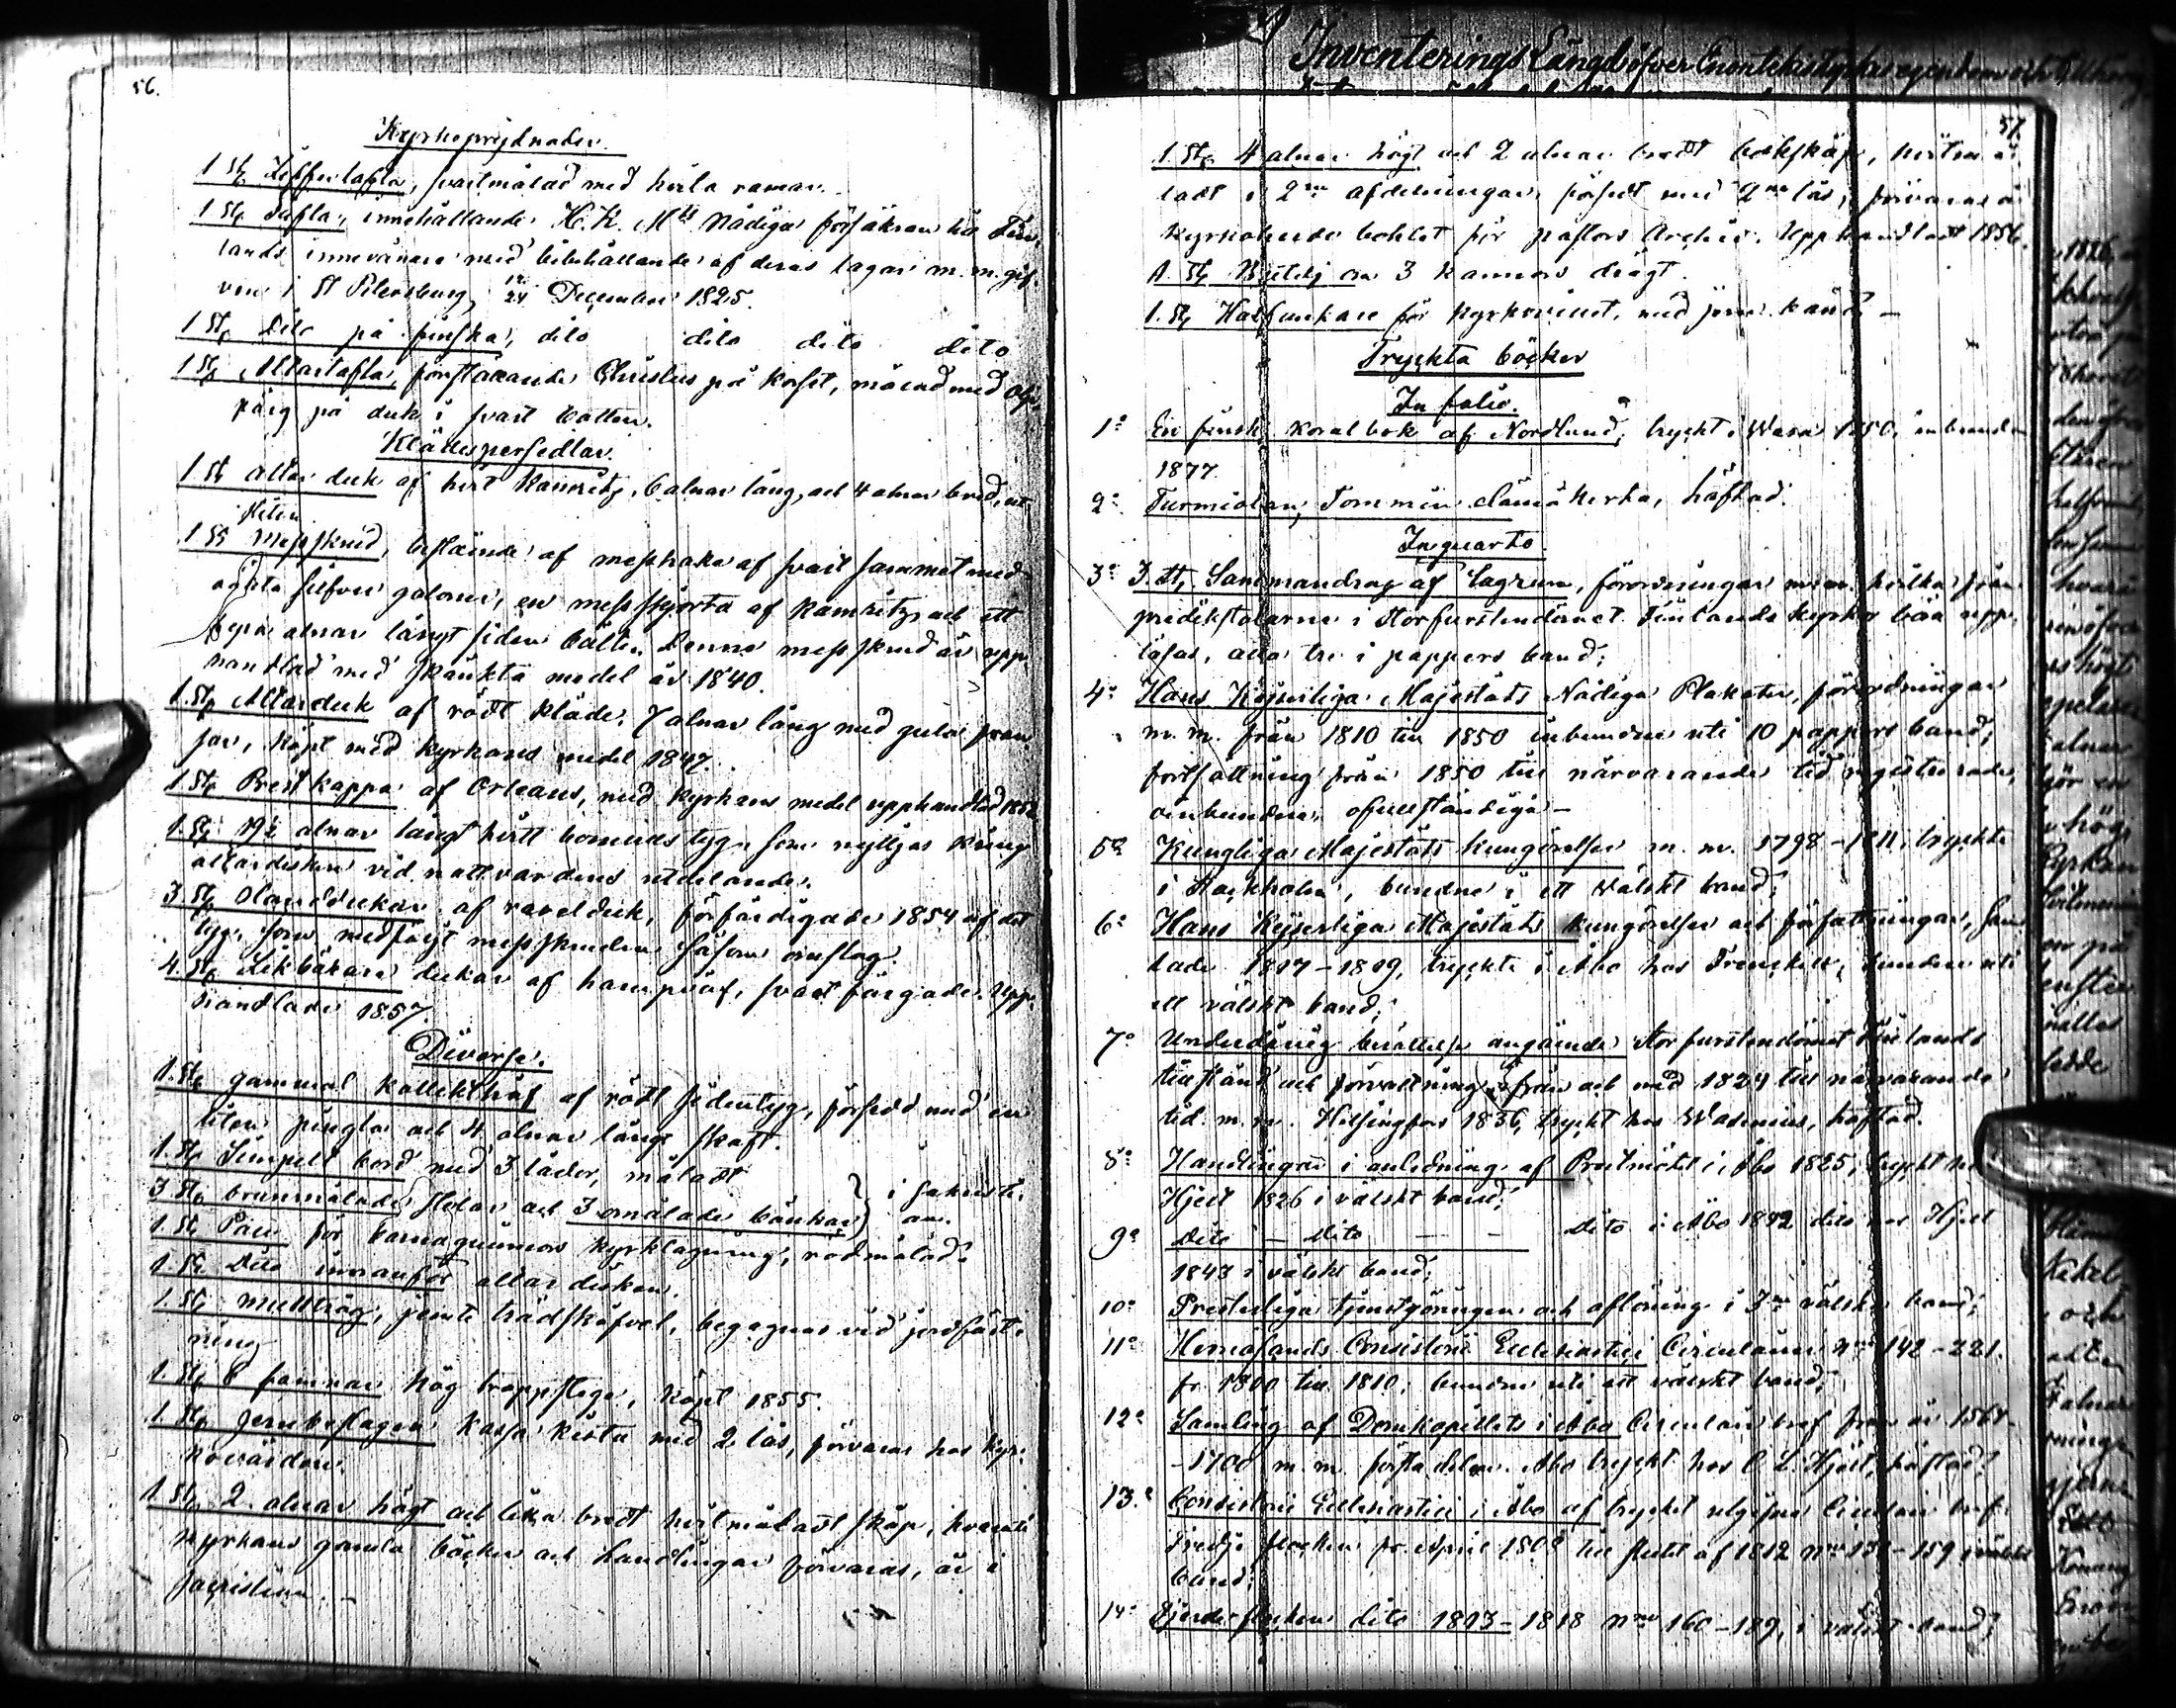 56.
Kyrkoprydnader.
1 St. Zifferlafla, svartmålad med hvita ramar.
1 St. Tafla, innehållande H. K. Mts Nådiga försäkran till Fin-
lands innevånare med bibehållande af deras lagar m. m. gif-
ven i St Petersburg, 12/24 December 1825.
1 St. Dito på finska, dito dito dito dito
1 St. Altartafla, föreställande Christus på korset, målad med olje-
färg på duk i svart botten.
Klädespersedlar.
1 St altar duk af hvit kammertg, 6 alnar lång, och 4 alnar bred, ut-
sliten.
1 St Messskrud, bestående af messhake af svart sammet med
oäkta silfver galoner, en messskjorta af kamritz, och ett
fyra alnar långt siden bälte. Denna messskrud är upp-
handlad med skänkta medel år 1840.
1. St. Altarduk af rödt kläde, 7 alnar lång med gula fran-
sar, köpt med kyrkans medel 1847.
1 St. Prestkappa af Orleans, med kyrkans medel upphandlad 1852
1. St. 19½ alnar långt hvitt bomulls tyg, som nyttjas kring
altardisken vid nattvardens utdelande.
3 St. Handdukar af ravelduk, förfärdigade 1854 af det
tyg, som medföljt messskruden såsom omslag.
4. St. Likbårars dukar af hampväf, svart färgade. Upp-
handlade 1857.
Diverse.
1. St. gammal kollekthåf af rödt sidentyg, försedd med en
liten pingla och 4 alnar långt skaft.
1. St. Simpelt bord med 3 lådor, måladt
3 St. brunmålade stolar och 3 omålade bänkar } i sakristi-
an.
1. St. Pall för barnaqvinnors kyrktagning, rödmålad.
1. St. Dito innanför altar disken.
1. St. Mulltråg, jemte trädskofvel, begagnas vid jordfäst-
ning
1. St. 8 famnar hög trappstege, köpt 1855.
1 St. Jernbeslagen kassa kista med 2 lås, förvaras hos kyr-
kovärden.
1 St. 2. alnar högt och lika bredt hvitmåladt skåp, hvaruti
kyrkans gamla böcker och handlingar förvaras, är i
sacristian. -
Inventerings Längd öfver Enontekis kyrkas egendom och
57.
1. St. 4 alnar högt och 2 alnar bredt bokskåp, hvitmå-
ladt i 2ne afdelningar, försedt med 2ne lås, förvaras å
kyrkoherde bohlet för pastors Archiv. Upphandladt 1856.
1. St. Butelj om 3 kannors drägt.
1. St. Halfankare för kyrkovinet, med jern band -
Tryckta böcker
In folio.
1° En finsk koralbok af Nordlund, tryckt i Wasa 1850, inbunden
1877.
2° Turmiolan Tommin elämäkerta, häftad.
In quarto.
3° 3. St. Sammandrag af Lagrum, förordningar m. m. hvilka från
predikstolarne i Storfurstendömet Finlands kyrkor böra upp-
läsas, alla tre i pappers band;
4° Hans Kejserliga Majestäts Nådiga Plakater, förordningar
m. m. från 1810 till 1850 inbundne uti 10 pappers band;
fortsättning från 1850 till närvarande tid registrerade,
oinbundna, ofullständiga -
5° Kungliga Majestäts kungörelser m. m. 1798 - tryckte
i Stockholm, bundne i ett wälskt band;
6° Hans Kejserliga Majestäts kungörelser och författningar, sam-
lade 1807-1809, tryckte i Åbo hos Frenckell, bundne uti
ett välskt band;
7° Underdånig berättelse angående Storfurstendömet Finlands
tillstånd och förvaltning ifrån och med 1824 till närvarande
tid m. m. Helsingfors 1836, tryckt hos Wasenius, häftad.
8° Handlingar i anledning af Prestmötet i Åbo 1825, tryckt hos
Hjelt 1826 i välskt band;
9° dito - dito - - dito i Åbo 1842 dito hos Hjelt
1843 i välskt band;
10° Presterliga tjenstgöringen och aflöning i 3ne välska band;
11° Hernösands Consistorii Ecclesiastici Circulairer Nris 142-221.
fr. 1800 till 1810, bundne uti ett välskt band;
12° Samling af Domkapitlets i Åbo Circulair bref från år 1564-
-1700 m. m. första delen. Åbo tryckt hos C L Hjelt, häftad.
13.° Consistorii Ecclesiastici i Åbo af trycket utgifne Circulair bref.
Tredje flocken fr. April 1808 till slutet af 1812 Nris 138-159 i välskt
band;
14° Fjerde flocken dito 1813-1818 Nris 160-189, i välskt band;